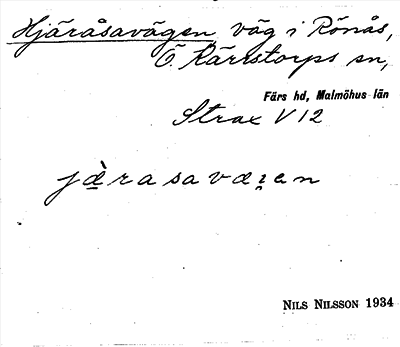 Hjäråsavägen väg i Rönås,
Ö. Kärrstorps sn,
Färs hd, Malmöhus län
Strax V 12
jæ̀rasavæ꭛an
NILS NILSSON 1934